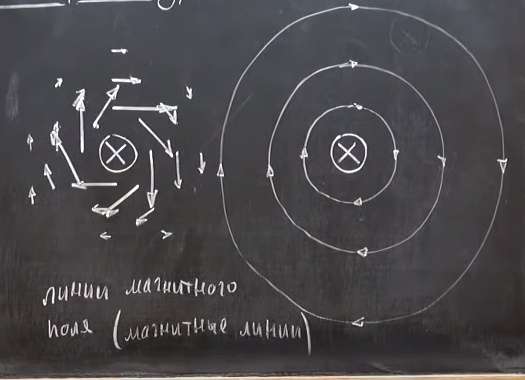 линии магнитного
поля (магнитные линии)